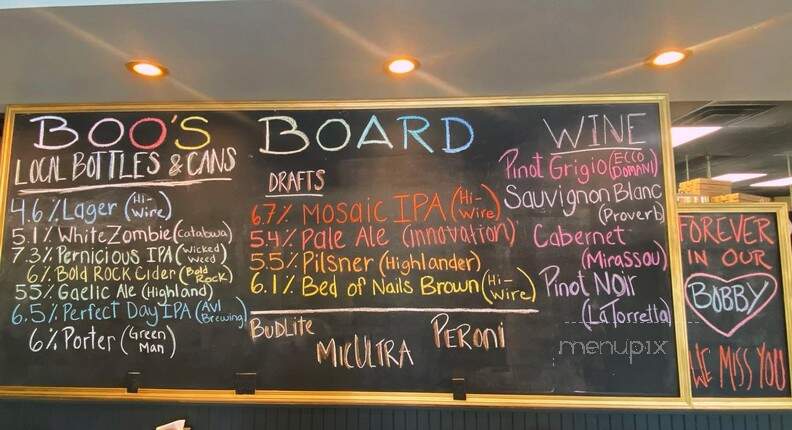 BOO'S BOARD
LOCAL BOTTLES & CANS
4.6% Lager (Hi-Wire)
5.1% White Zombie (Catabwa)
7.3% Pernicious IPA (Wicked Weed)
6% Bold Rock Cider (Bold Rock)
5.5% Gaelic Ale (Highland)
6.5% Perfect Day IPA (Avl Brewing)
6% Porter (Green Man)
DRAFTS
6.7% Mosaic IPA (Hi-Wire)
5.4% Pale Ale (innovation)
5.5% Pilsner (Highlander)
6.1% Bed of Nails Brown (Hi-Wire)
BUDLite
MICULTRA
PERONI
WINE
Pinot Grigio (ECCO DOMANI)
Sauvignon Blanc
(Proverb)
Cabernet
(Mirassou)
Pinot Noir
(LaTorretta)
FOREVER
IN OUR
BOBBY
WE MISS YOU
menupix